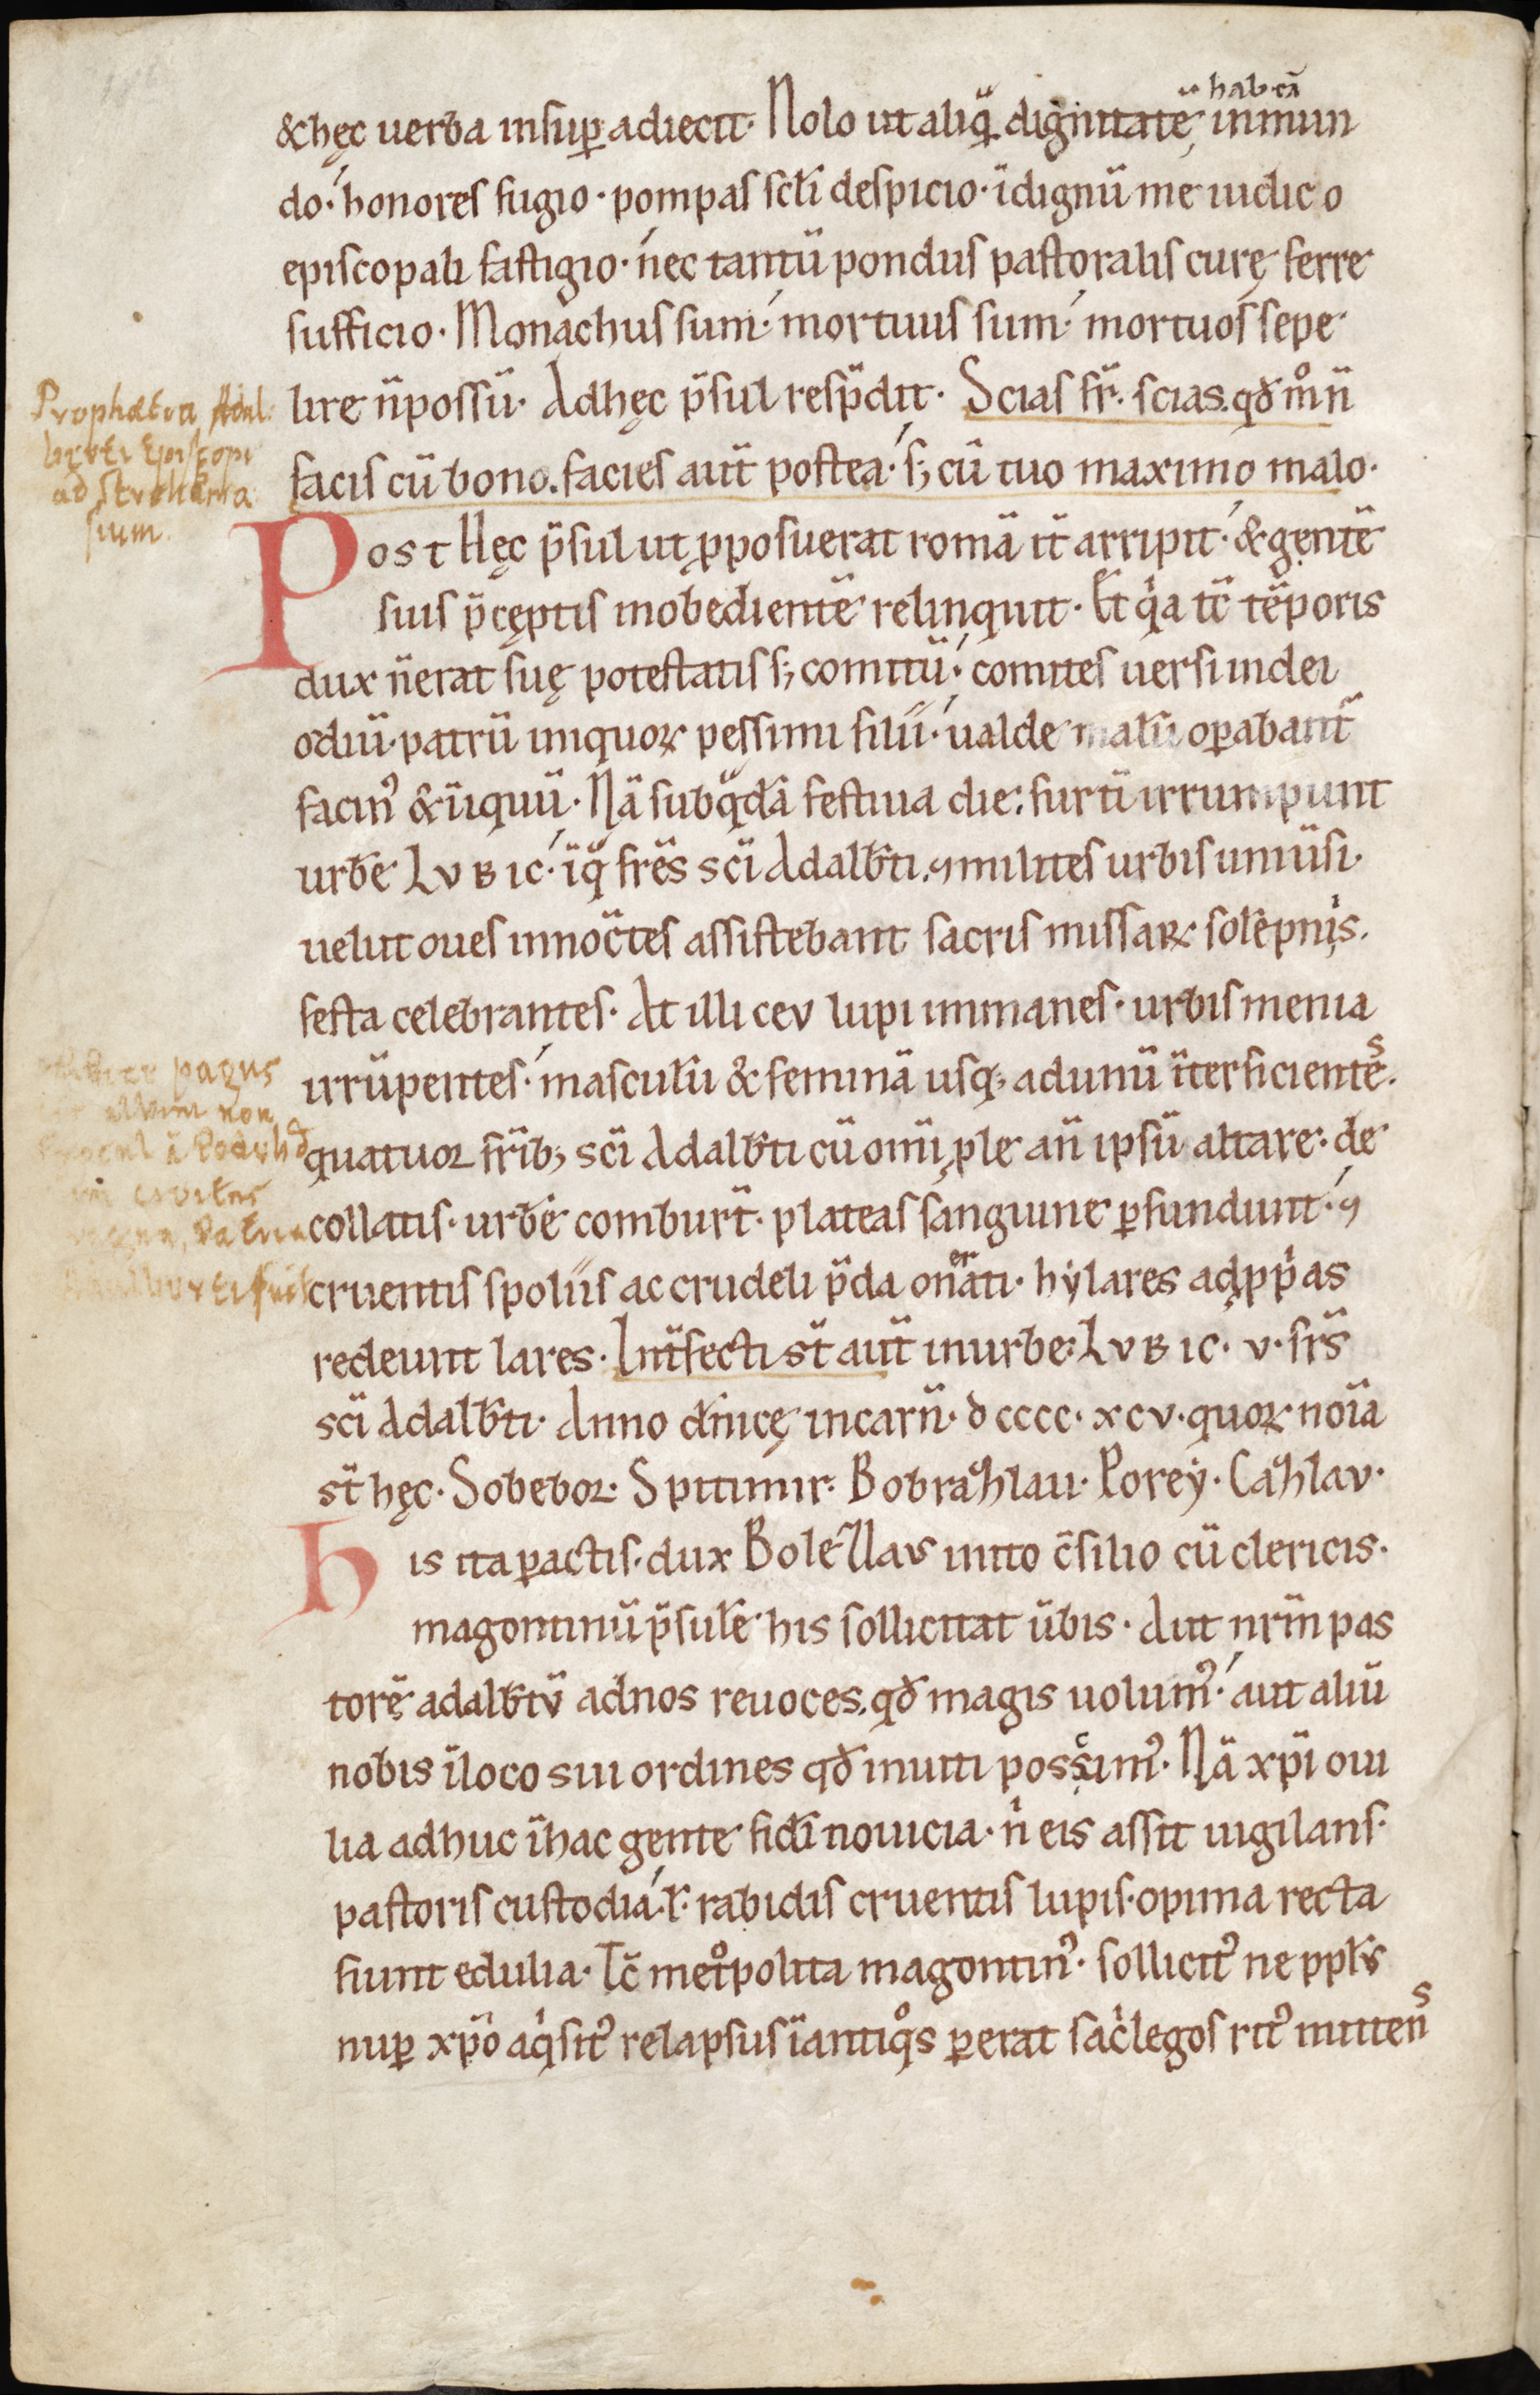 hab eā
&hęc uerba insuꝑ adiecit· Nolo ut aliqͣ dignitatē; inmun
do· honores fugio· pompas sc̄li despicio· īdignū me iudico
episcopali fastigio· nec tantū pondus pastoralis curę ferre
sufficio· Monachus sum· mortuus sum· mortuos sepe
lire n̄ possū· Adhęc p̄sul resp̄dit· Scias fr̄· scias. qđ m̊ n̄
facis cū bono. facies aut̄ postea· s; cū tuo maximo malo·
Post Hęc p̄sul ut ꝓposuerat romā it̄ arripit· & gentē
suis p̄cęptis inobedientē relinquit· Et qͥa tc̄ tēporis
dux n̄ erat suę potestatis s; comitū· comites uersi in dei
odiū· patrū iniquoꝝ pessimi filii· ualde malū oꝑabant̄
facin᾽ & īiquū· Nā sub qͣdā festiua die: furtī irrumpunt
urbē Lvbic· ī qͣ fr̄es sc̄i Adalb̄ti. ꝯmilites urbis uniūsi·
uelut oues innoc̄tes assistebant sacris missaꝝ solēpniis.
festa celebrantes· At illi cev lupi immanes· urbis menia
irrūpentes· masculū & feminā usq; adunū īterficientes.
quatuoꝛ fr̄ib; sc̄i Adalb̄ti cū om̄i ꝓle an̄ ipsū altare: de
collatis· urbē comburt̄· plateas sanguine ꝑfundunt· ꝯ
cruentis spoliis ac crudeli p̄da onerati· hẏlares ad ꝓpͥas
redeunt lares· Int̄fecti st̄ aut̄ inurbe: Lvbic· v· fr̄s
sc̄i Adalb̄ti· Anno dn̄icę incarn̄· dcccc· xcv· quoꝝ noīa
st̄ hęc· Sobeboꝛ· Spitimir· Bobrazlau· Poreẏ· Cazlav·
His ita ꝑactis· dux Bolezlaus inito c̄silio cū clericis·
magontinū p̄sulē his sollicitat ūbis· Aut nr̄m pas
torē adalb̄tū ad nos reuoces. qđ magis uolum᾽· aut aliū
nobis īloco sui ordines qđ inuiti poscim᾽· Nā xp̄i oui
lia adhuc ī hac gente fidī nouicia· nͥ eis assit uigilans·
pastoris custodia· ł· rabidis cruentis lupis· opima recta
fiunt edulia· Tc̄ met̊polita magontin᾽· sollicit᾽ ne ppl̄s
nuꝑ xp̄o aqͥsit᾽ relapsus ī antiqͦs ꝑerat sacͥlegos rit᾽ mittens
Prophetia Adal
berti Episcopi
ad Strohkwa
sium.
pagus
non
procul
civitas